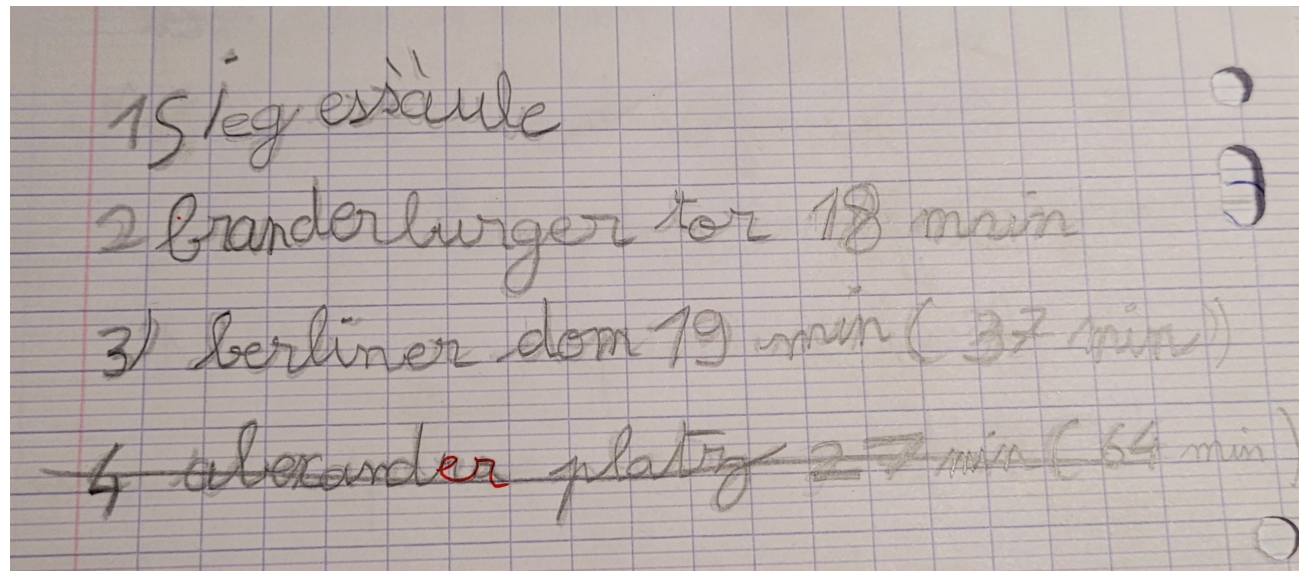 1 Siegessäule
2 branderburger tor 18 min
3) berliner dom 19 min (37 min)
4 alexander platz 27 min (64 min)